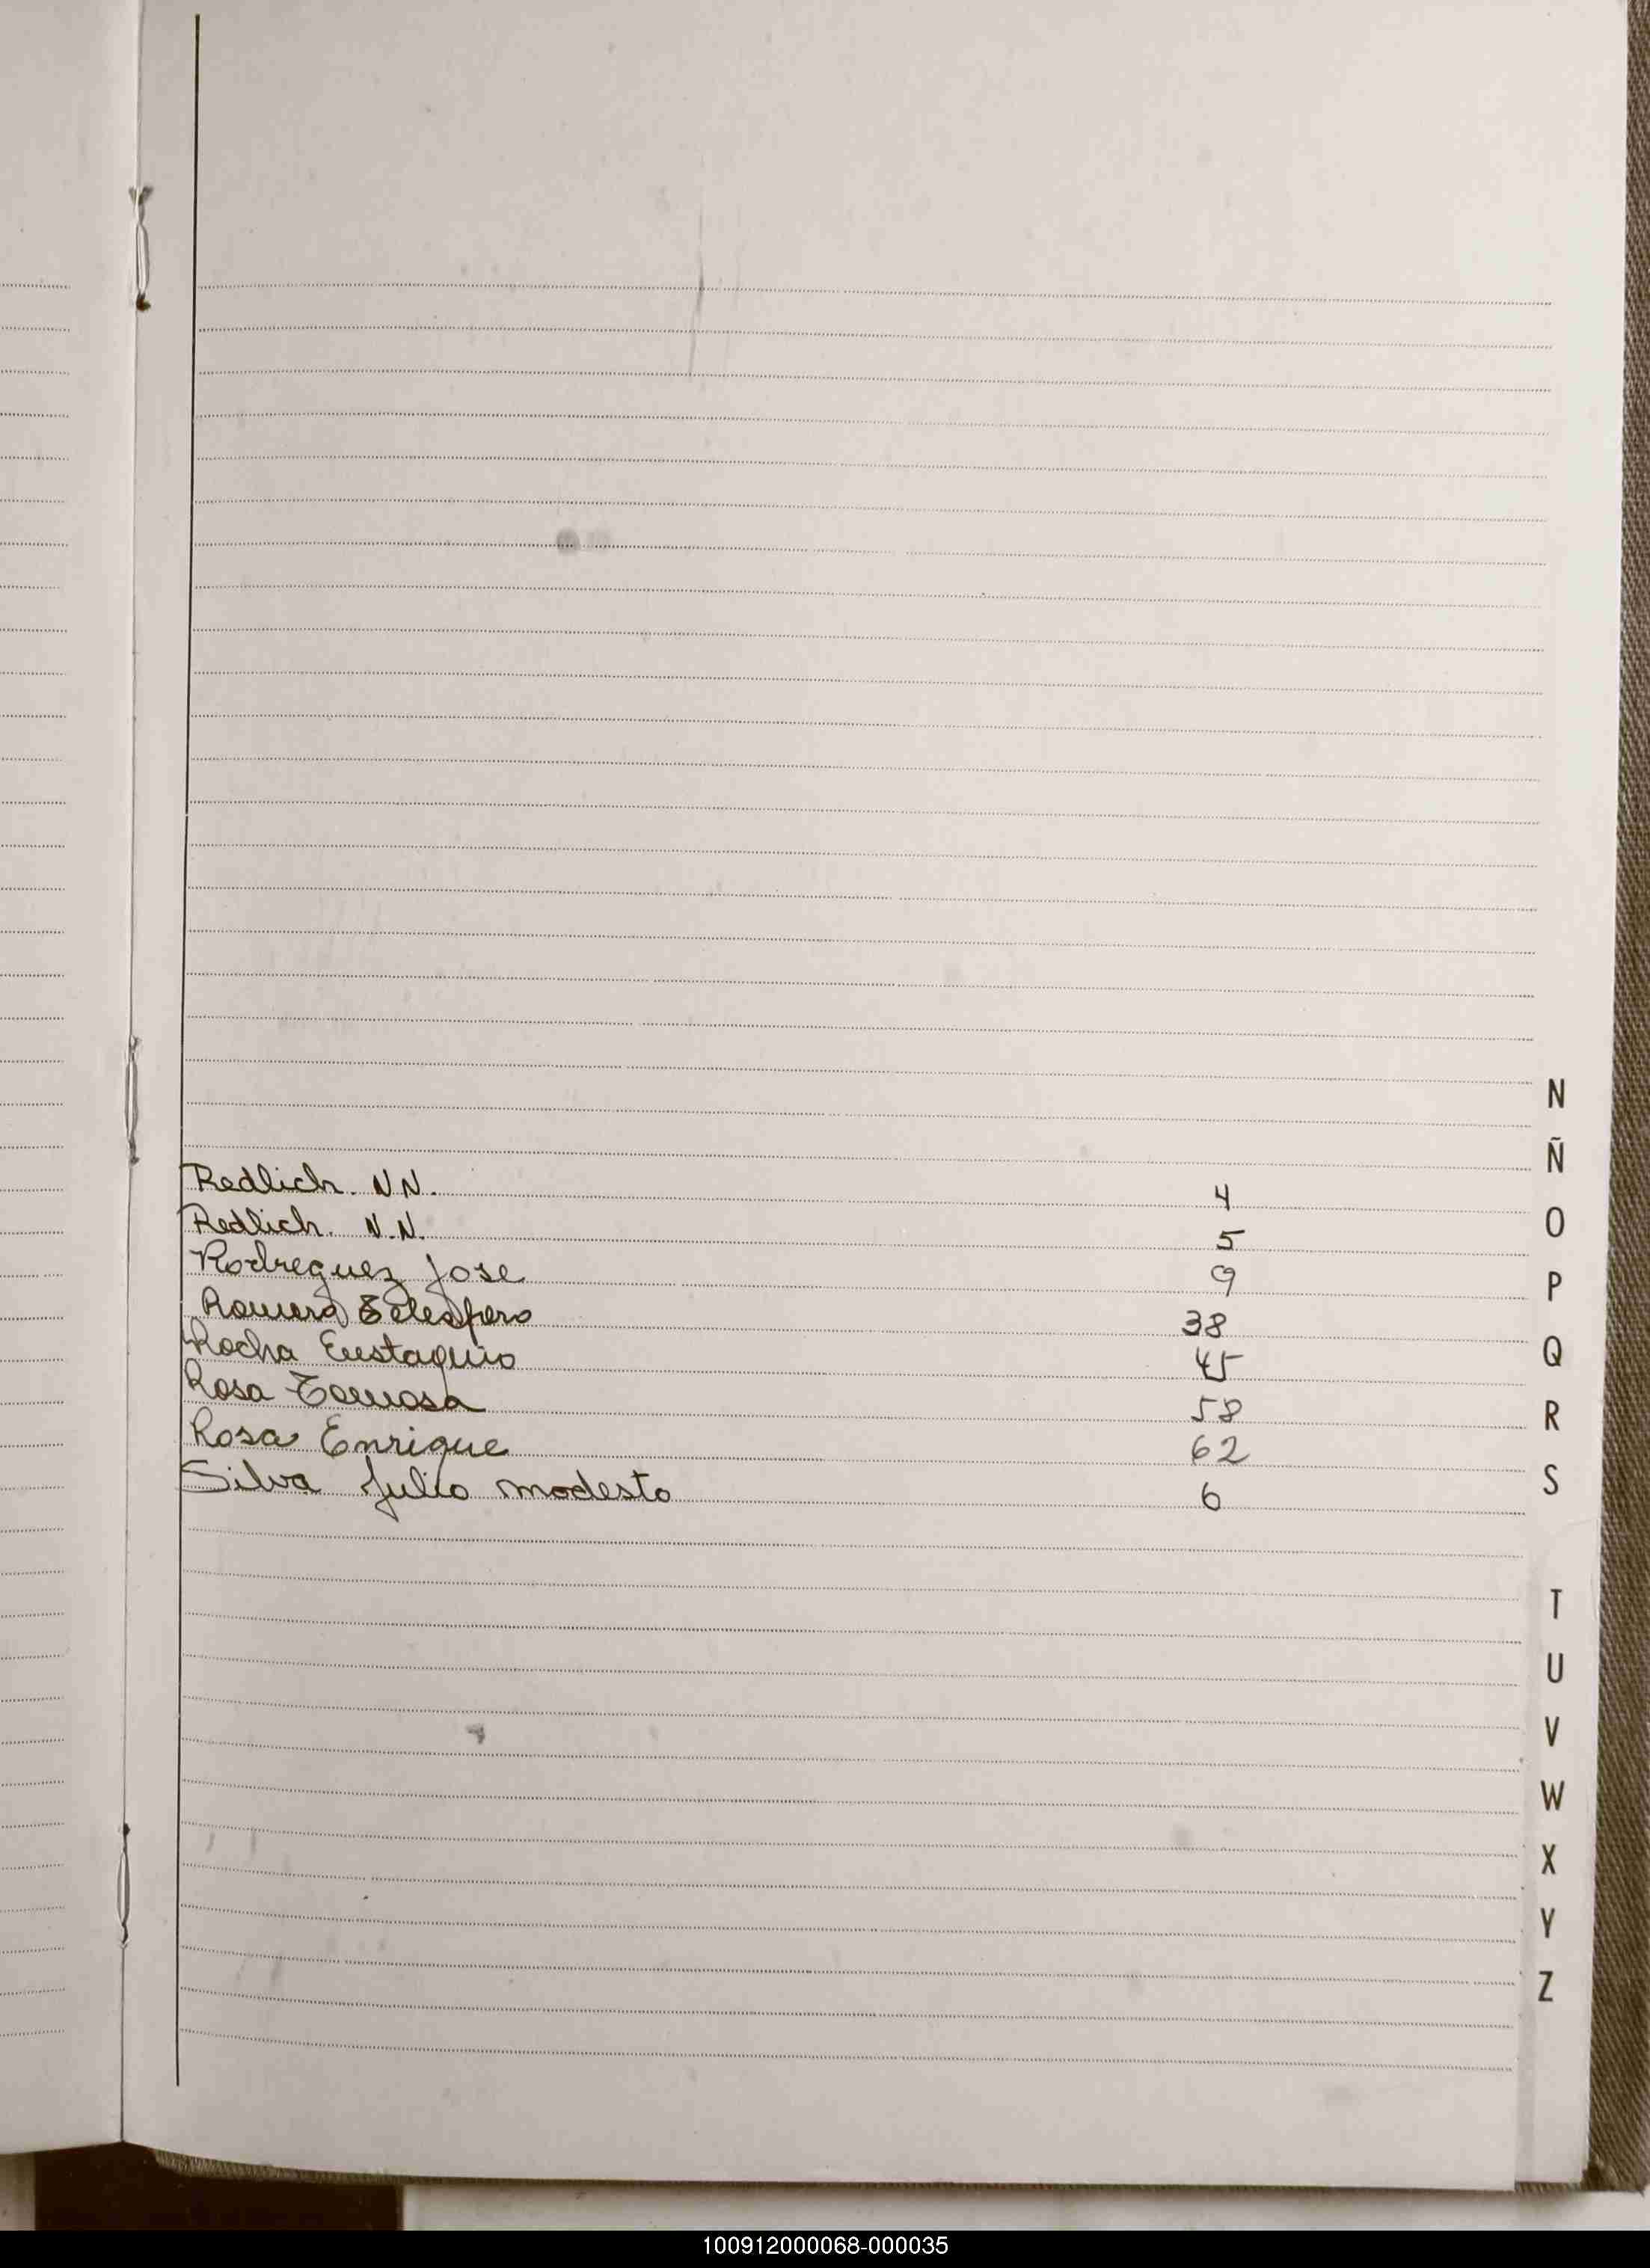 Redlich. N.N. 4
Redlich. N.N. 5
Rodreguez Jose 9
Romero Telesforo 38
Rocha Eustaquio 45
Rosa Tomasa 58
Rosa Enrique 62
Silva Julio modesto 6
N
Ñ
O
P
Q
R
S
T
U
V
W
X
Y
Z
100912000068-000035